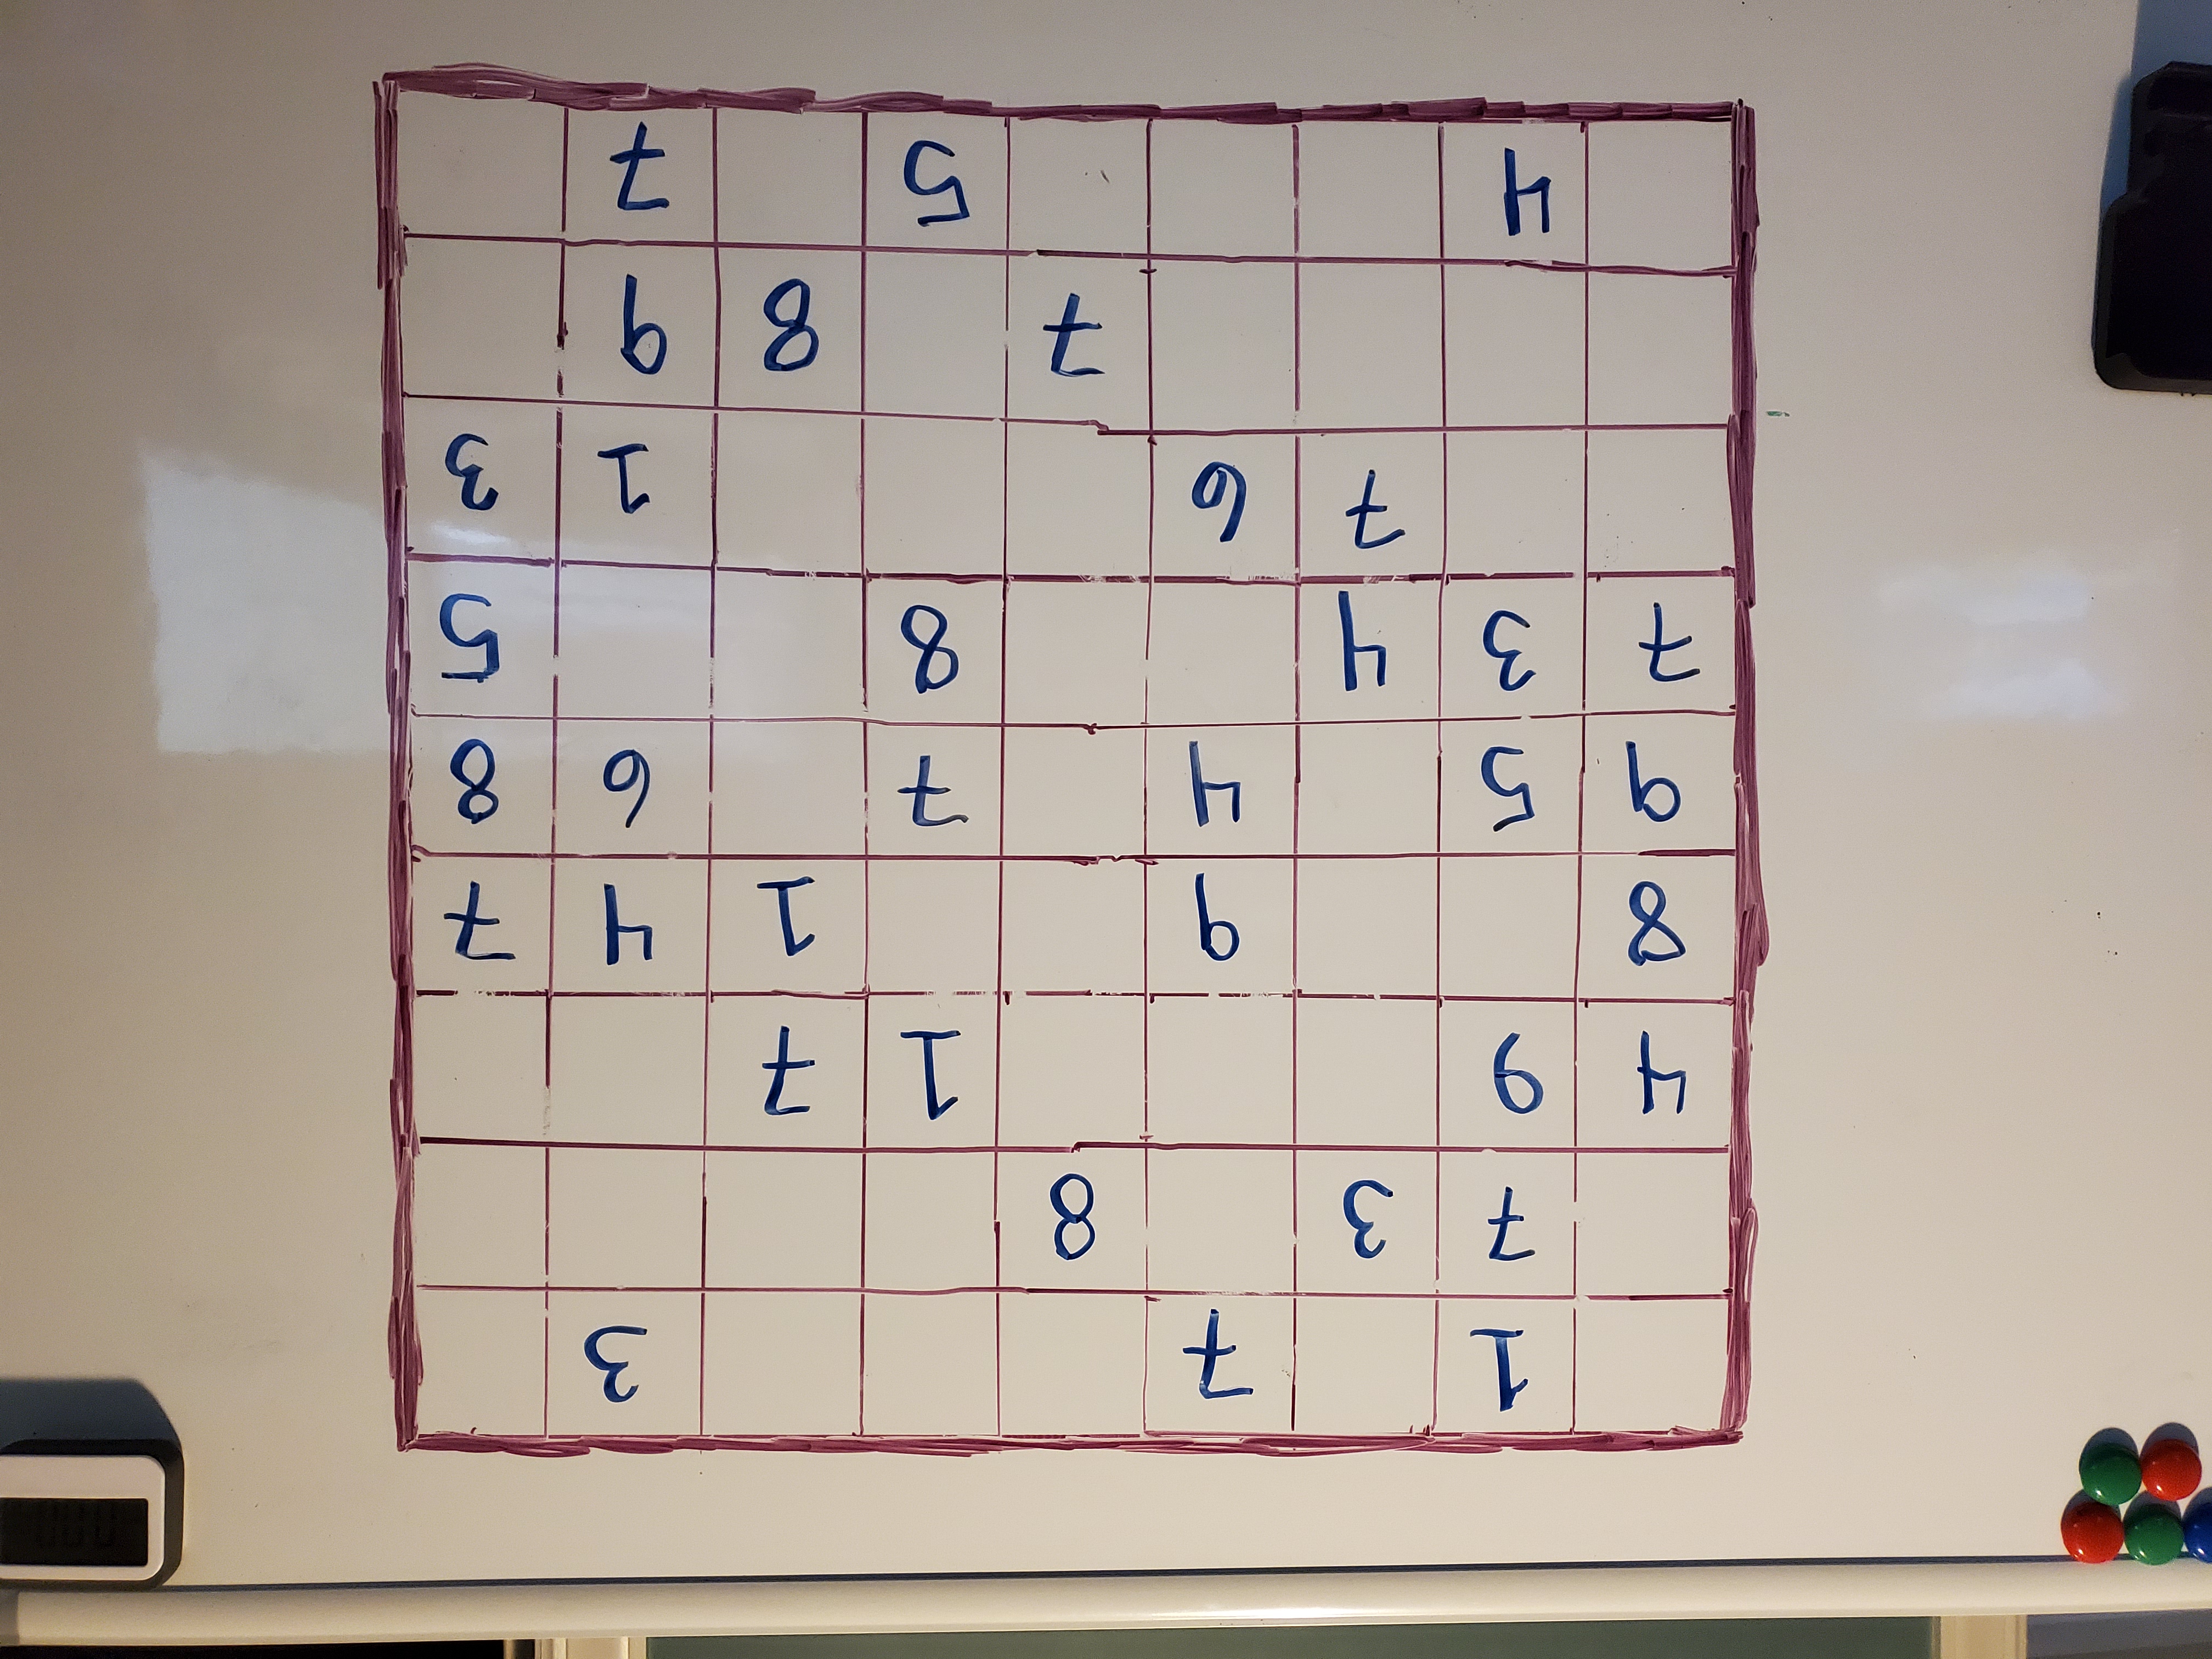 1 7 3
7 3 8
4 9 1 7
8 9 1 4 7
9 5 4 7 6 8
7 3 4 8 5
7 6 1 3
7 8 9
4 5 7